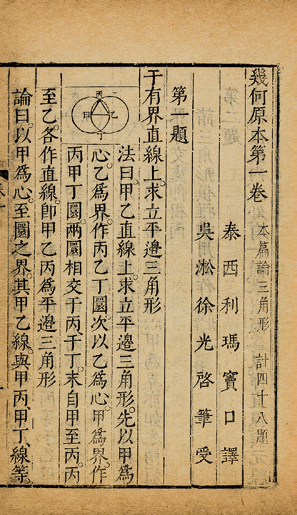 幾何原本第一卷 本篇論三角形 計四十八題
泰西利瑪竇口譯
吳淞徐光啓筆受
第一題
于有界直線上求立平邊三角形
法曰甲乙直線上求立平邊三角形先以甲爲
心乙爲界作丙乙丁圜次以乙爲心甲爲界作
丙甲丁圜兩圜相交于丙于丁末自甲至丙丙
至乙各作直線卽甲乙丙爲平邊三角形
論曰以甲爲心至圜之界其甲乙線與甲丙甲丁線等
丙
甲
乙
丁